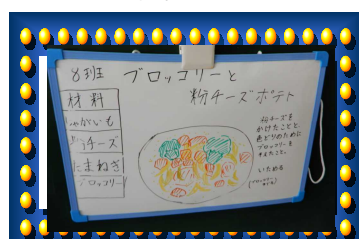 8班 ブロッコリーと
粉チーズポテト
材料
じゃがいも
粉チーズ
たまねぎ
ブロッコリー
粉チーズを
かけたことと、
色どりのために
ブロッコリーを
いためる